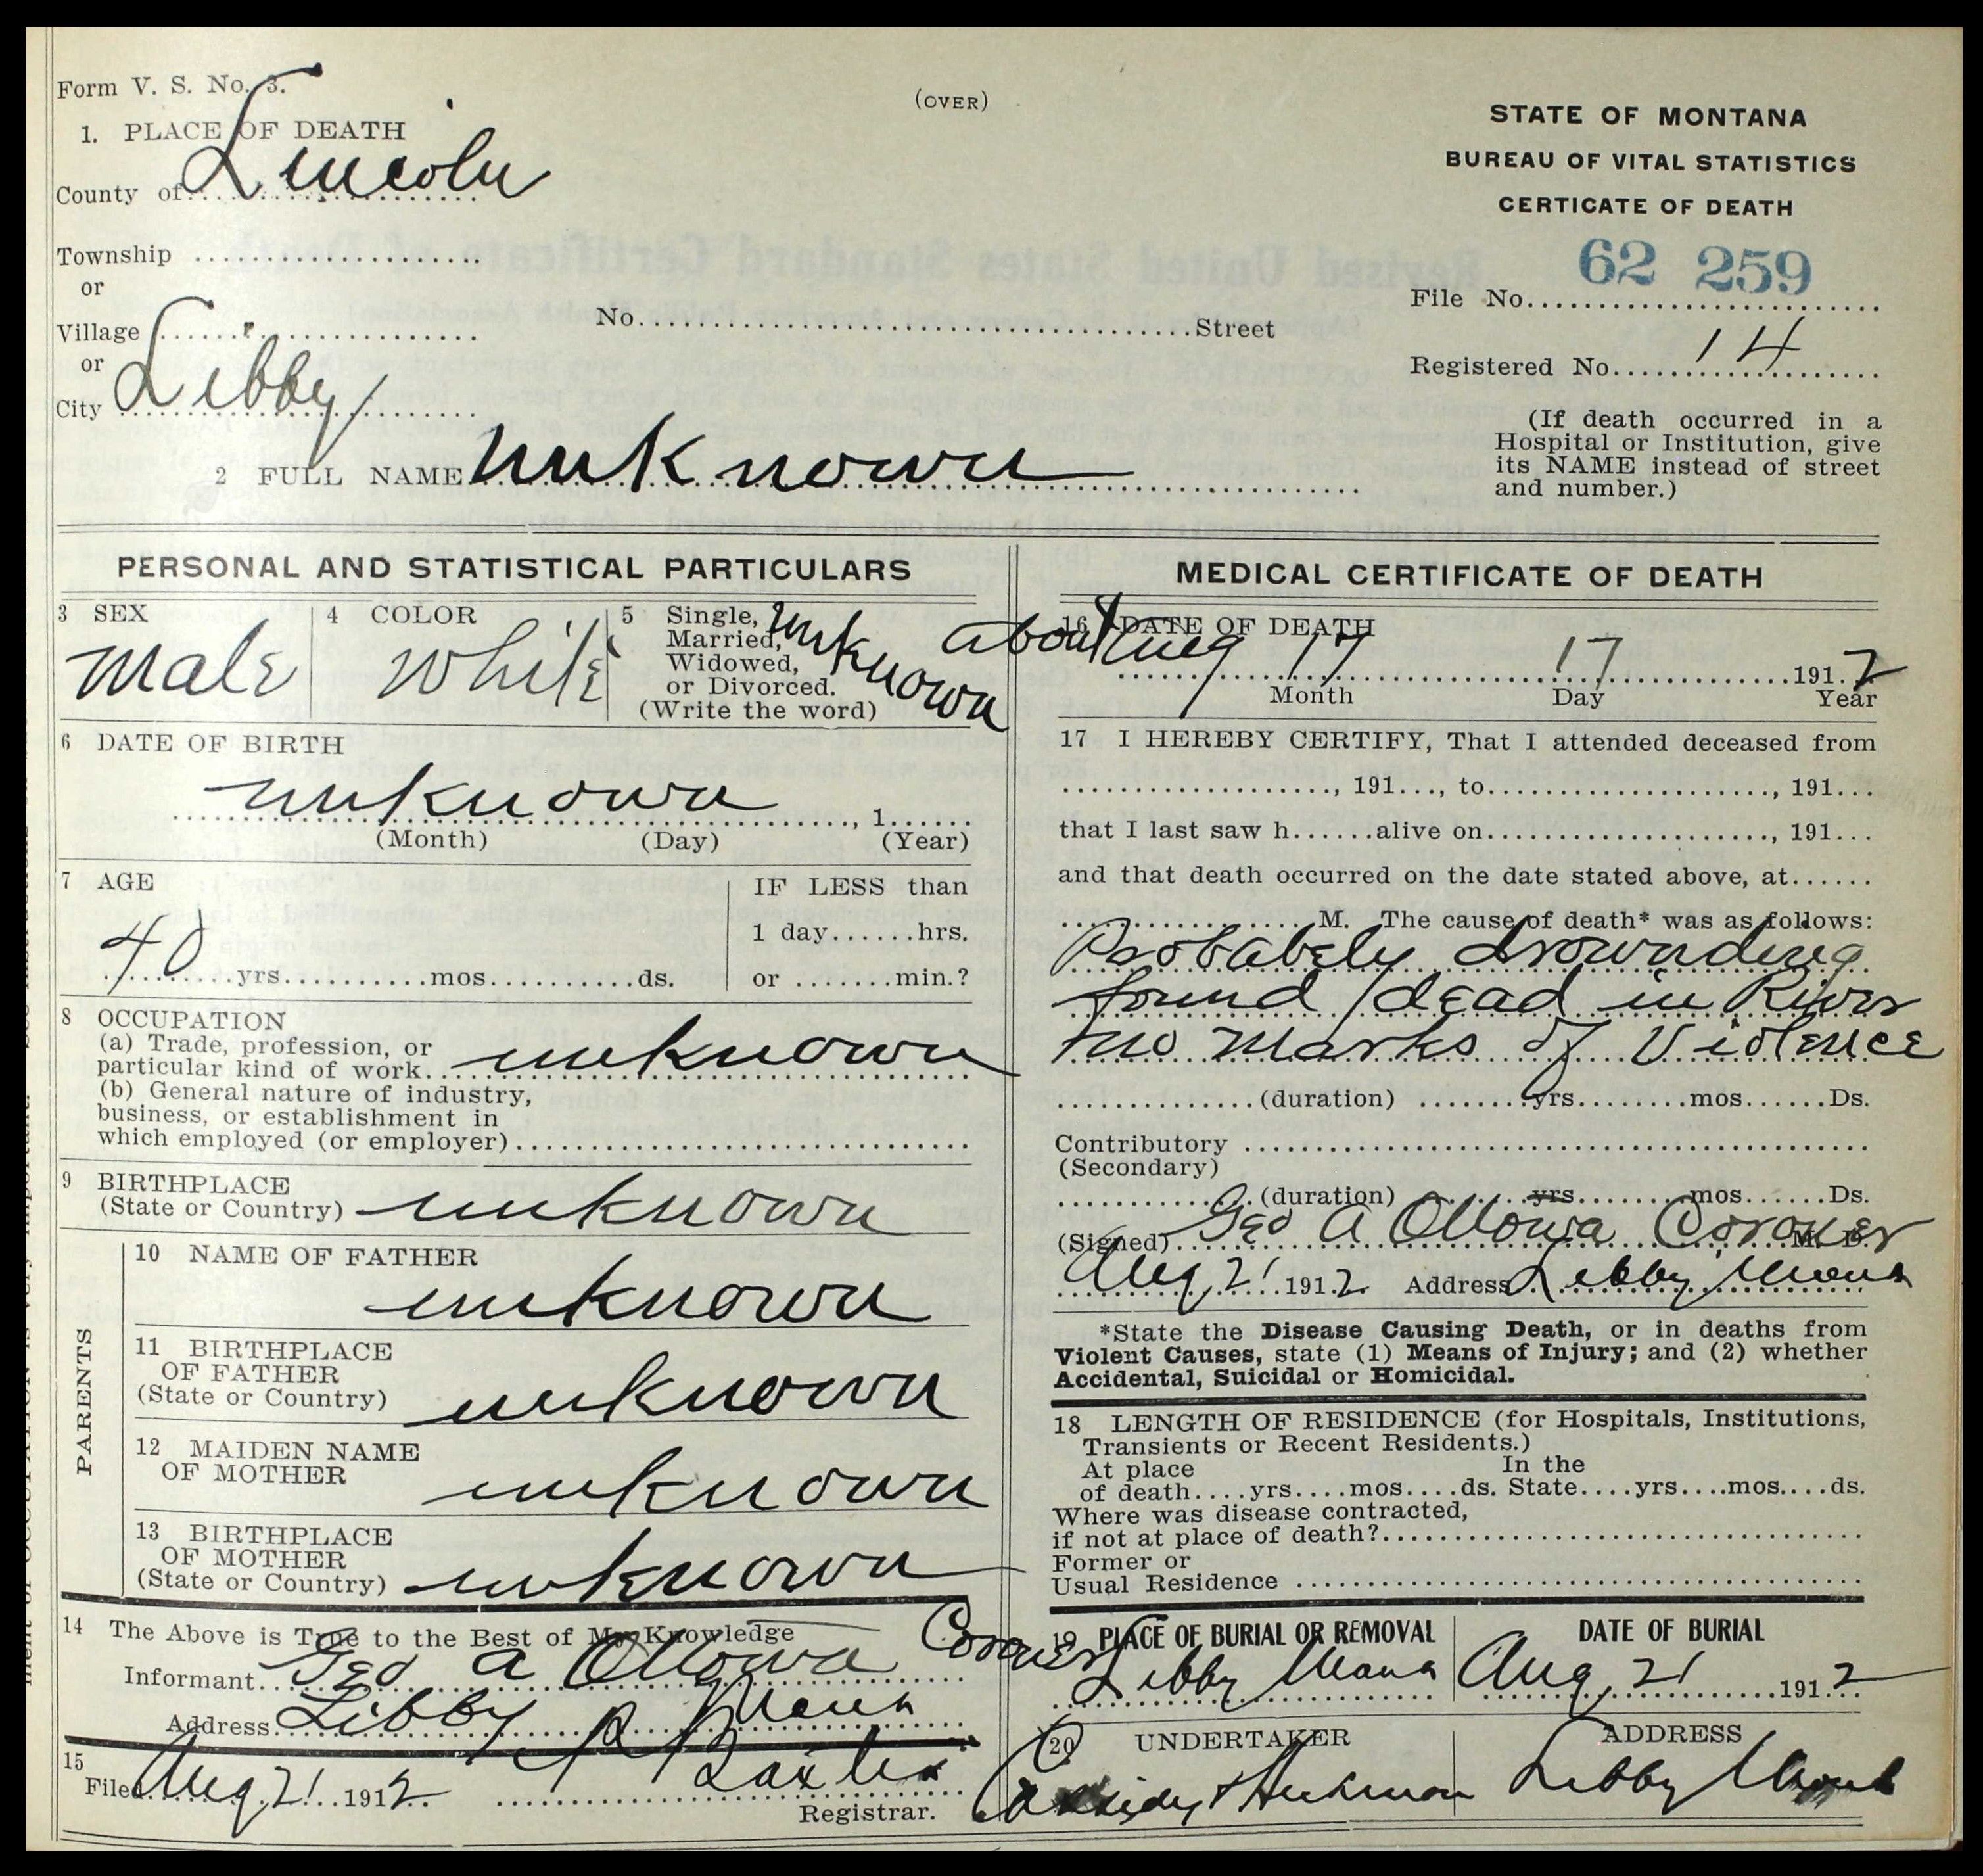 Form V. S. No. 3.
(OVER)
STATE OF MONTANA
BUREAU OF VITAL STATISTICS
CERTICATE OF DEATH
1. PLACE OF DEATH
County of Lincoln
Township
or
Village
or
City Libby
No. Street
62 259
File No.
Registered No. 14
(If death occurred in a
Hospital or Institution, give
its NAME instead of street
and number.)
2 FULL NAME unknown
PERSONAL AND STATISTICAL PARTICULARS
3 SEX
male
4 COLOR
White
5 Single,
Married,
Widowed,
or Divorced.
(Write the word)
unknown
6 DATE OF BIRTH
unknown , 1
(Month) (Day) (Year)
7 AGE
40 yrs. mos. ds.
IF LESS than
1 day hrs.
or min.?
8 OCCUPATION
(a) Trade, profession, or
particular kind of work unknown
(b) General nature of industry,
business, or establishment in
which employed (or employer)
9 BIRTHPLACE
(State or Country) unknown
PARENTS
10 NAME OF FATHER
unknown
11 BIRTHPLACE
OF FATHER
(State or Country) unknown
12 MAIDEN NAME
OF MOTHER unknown
13 BIRTHPLACE
OF MOTHER
(State or Country) unknown
14 The Above is True to the Best of My Knowledge
Informant Geo A Coroner
Address Libby Mont
15
Filed Aug 21 1912 Baxter
Registrar.
MEDICAL CERTIFICATE OF DEATH
16 DATE OF DEATH
about Aug 17 17 1912
Month Day Year
17 I HEREBY CERTIFY, That I attended deceased from
, 191..., to , 191...
that I last saw h......alive on , 191...
and that death occurred on the date stated above, at......
M. The cause of death* was as follows:
Probabely drownding
found dead in River
no marks of Violence
(duration) yrs. mos. Ds.
Contributory
(Secondary)
(duration) yrs. mos. Ds.
(Signed) Geo A Coroner M. D.
Aug 21 1912 Address Libby Mont
*State the Disease Causing Death, or in deaths from
Violent Causes, state (1) Means of Injury; and (2) whether
Accidental, Suicidal or Homicidal.
18 LENGTH OF RESIDENCE (for Hospitals, Institutions,
Transients or Recent Residents.)
At place In the
of death....yrs....mos....ds. State....yrs....mos....ds.
Where was disease contracted,
if not at place of death?
Former or
Usual Residence
19 PLACE OF BURIAL OR REMOVAL
Libby Mont
DATE OF BURIAL
Aug, 21 1912
20 UNDERTAKER
ADDRESS
Libby Mont